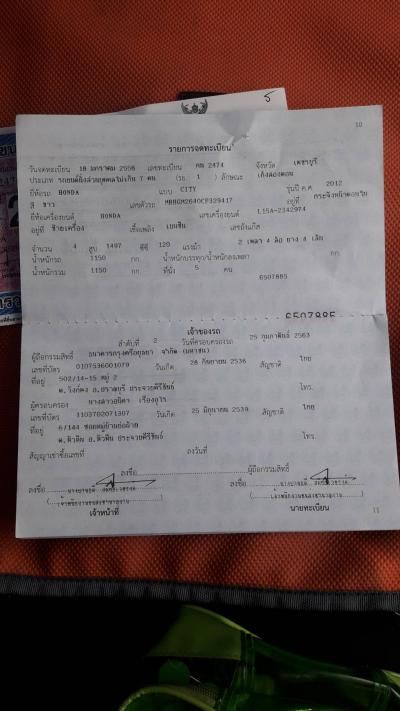 5
10
รายการจดทะเบียน
วันจดทะเบียน 18 มกราคม 2556 เลขทะเบียน กพ 2474 จังหวัด เพชรบุรี
ประเภท รถยนต์นั่งส่วนบุคคลไม่เกิน 7 คน (รย. 1 ) ลักษณะ เก๋งสองตอน
ยี่ห้อรถ HONDA แบบ CITY รุ่นปี ค.ศ. 2012
สี ขาว เลขตัวรถ อยู่ที่
ยี่ห้อเครื่องยนต์ HONDA เลขเครื่องยนต์ L15A-2342974
อยู่ที่ ซ้ายเครื่อง เชื้อเพลิง เบนซิน เลขถังแก๊ส
จำนวน 4 สูบ 1497 ซีซี 120 แรงม้า 2 เพลา 4 ล้อ ยาง 4 เส้น
น้ำหนักรถ 1150 กก. น้ำหนักบรรทุก/น้ำหนักลงเพลา กก.
น้ำหนักรวม 1150 กก. ที่นั่ง 5 คน
6507885
6507885
เจ้าของรถ
ลำดับที่ 2 วันที่ครอบครองรถ 25 กุมภาพันธ์ 2563
ผู้ถือกรรมสิทธิ์ ธนาคารกรุงศรีอยุธยา จำกัด (มหาชน)
เลขที่บัตร 0107536001079 วันเกิด 28 กันยายน 2536 สัญชาติ ไทย
ที่อยู่ 502/14-15 หมู่ 2
ต.วังก์พง อ.ปราณบุรี ประจวบคีรีขันธ์ โทร.
ผู้ครอบครอง
เลขที่บัตร 1103702071307 วันเกิด 25 มิถุนายน 2539 สัญชาติ ไทย
ที่อยู่ 6/144
ต.หัวหิน อ.หัวหิน ประจวบคีรีขันธ์ โทร.
สัญญาเช่าซื้อเลขที่ ลงวันที่
ลงชื่อ ผู้ถือกรรมสิทธิ์
ลงชื่อ ลงชื่อ
เจ้าหน้าที่ นายทะเบียน
11